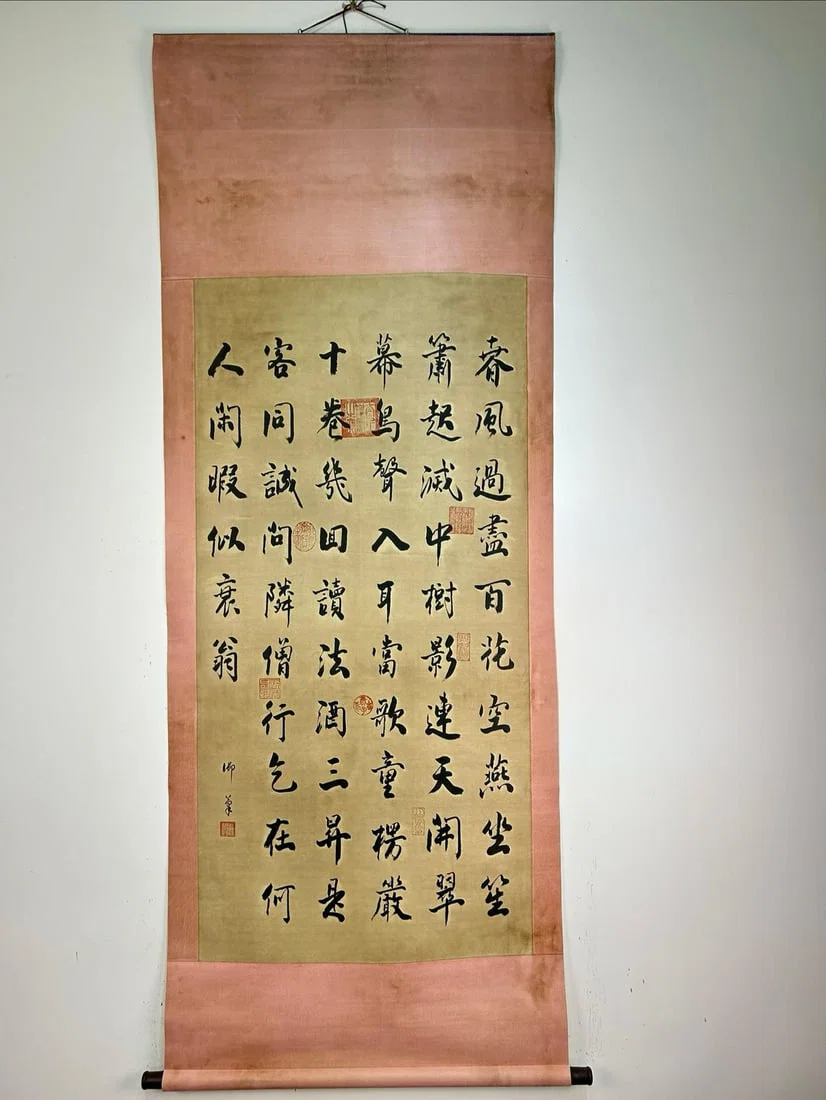 春風過盡百花空燕坐笙
簫起滅中樹影連天開翠
幕鳥聲入耳當歌童楞嚴
十卷幾回讀法酒三昇是
客同試問隣僧行乞在何
人閑暇似衰翁
御筆